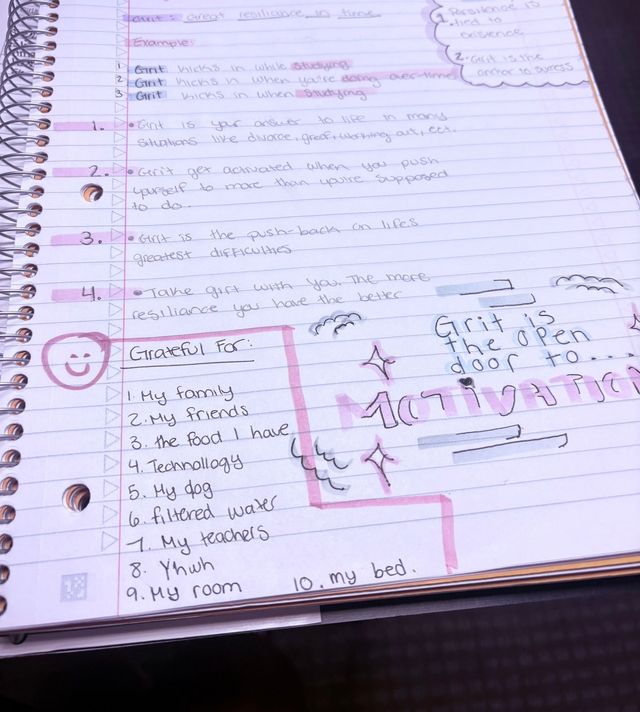 Grit: Great resiliance in time
Example:
1 Grit kicks in while studying
2 Grit kicks in when you're doing over-time
3 Grit kicks in when studying
1. Persilence is
tied to
existence
2. Grit is the
answer to success
1. • Grit is your answer to life in many
situations like divorce, greif, working out, ect.
2. • Grit get activated when you push
yourself to more than you're supposed
to do.
3. • Grit is the push-back on lifes
greatest difficulties
4. • Take grit with you. The more
resiliance you have the better
Grateful For:
1. My family
2. My friends
3. the food I have
4. Technollogy
5. My dog
6. filtered water
7. My teachers
8. Yhwh
9. My room
10. my bed.
Grit is
the open
door to...
MOTIVATION